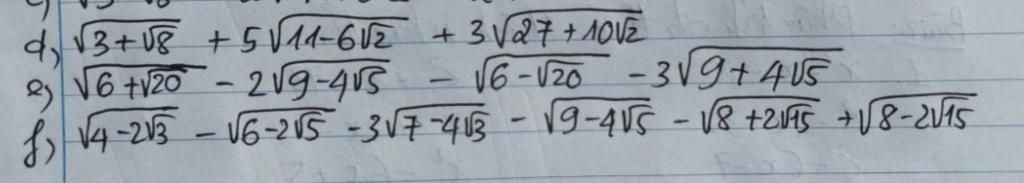 d, √(3+√8) + 5√(11-6√2) + 3√(27+10√2)
e, √(6+√20) - 2√(9-4√5) - √(6-√20) - 3√(9+4√5)
f, √(4-2√3) - √(6-2√5) - 3√(7-4√3) - √(9-4√5) - √(8+2√15) + √(8-2√15)